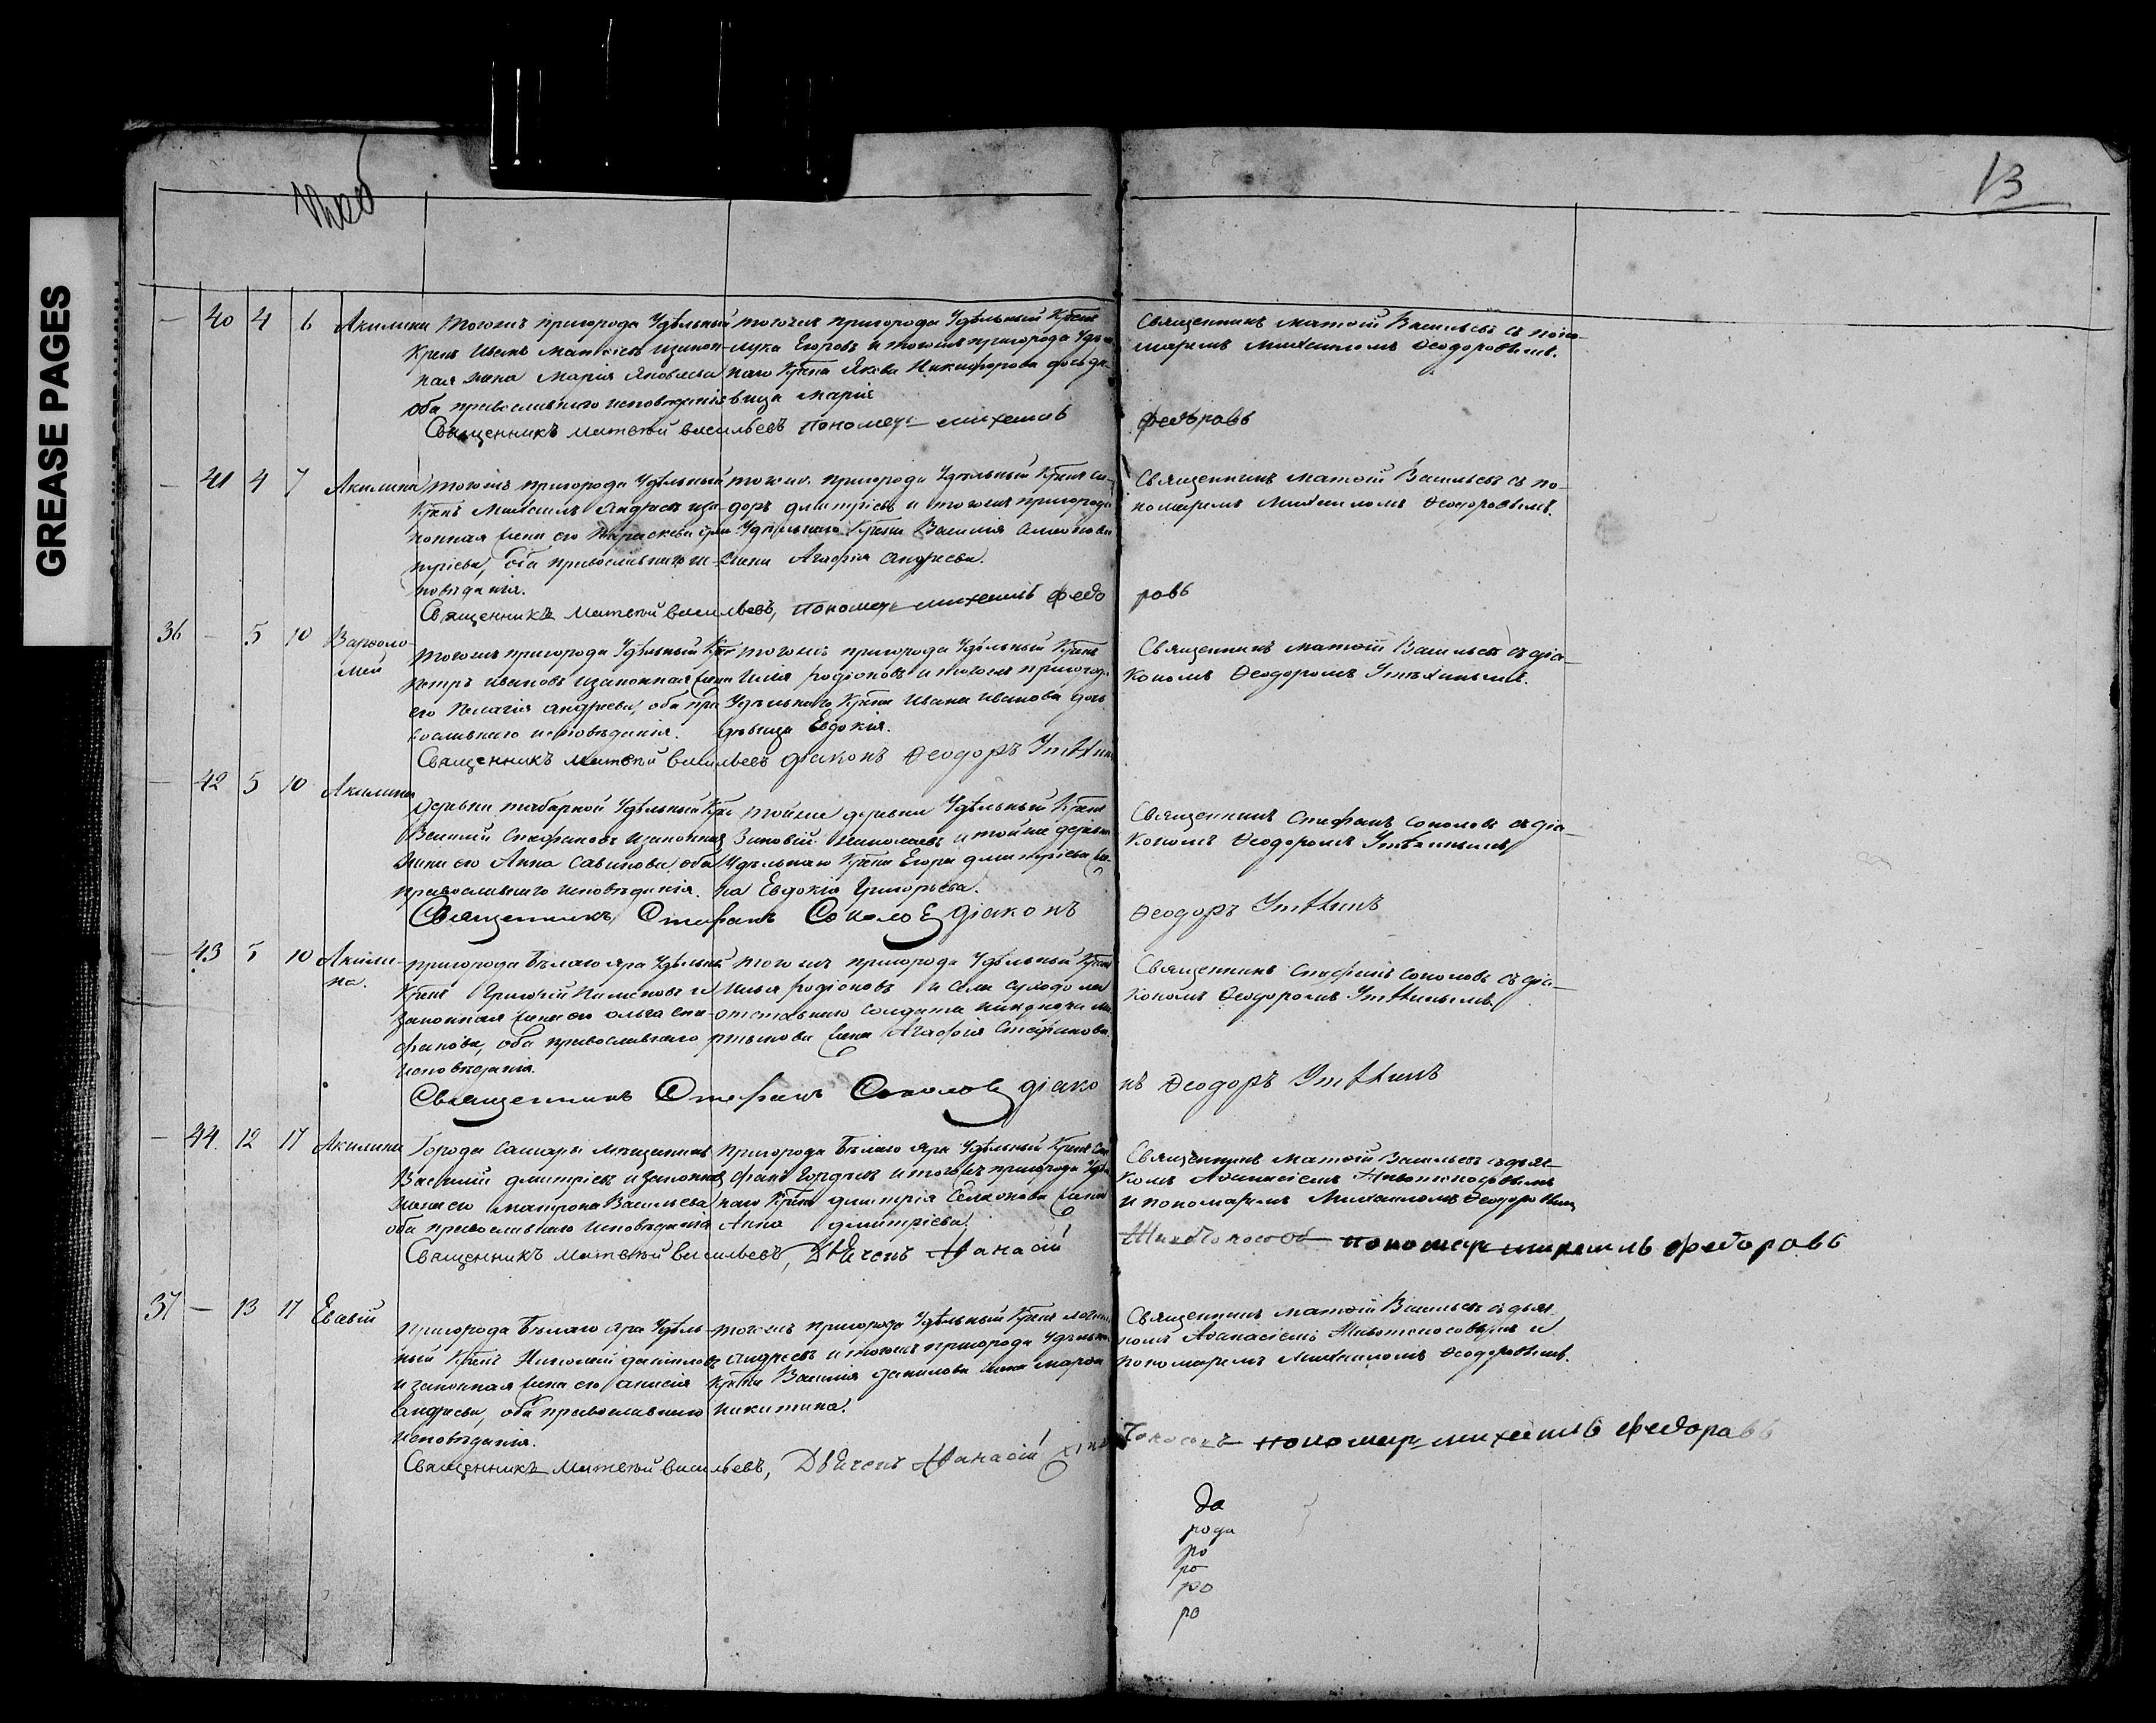 GREASE PAGES
13
— 40 4 6 Акилина
Тогожъ пригорода Удѣльный
Крест: Иванъ Матвѣевъ и закон-
ная жена Марія Яковлева
оба православнаго исповѣданія
тогожъ пригорода Удѣльный Крест:
Лука Егоровъ и тогожъ пригорода Удѣль
наго Крест: Якова Никифорова дочь дѣ-
вица Марія
Священникъ Матѳій Васильевъ съ поно-
маремъ Михаиломъ Ѳеодоровымъ.
Священникъ Матвѣй Васильевъ Пономарь Михаилъ Федоровъ
— 41 4 7 Акилина
Тогожъ пригорода Удѣльный
Крест: Михаилъ Андреевъ и за-
конная жена его Параскева Дми
тріева, оба православнаго ис-
повѣданія.
тогожъ пригорода Удѣльный Крест: Си-
доръ Дмитріевъ и тогожъ пригорода
Удѣльнаго Крест: Василія
жена Агафія Андреева.
Священникъ Матѳій Васильевъ съ по-
номаремъ Михаиломъ Ѳеодоровымъ.
Священникъ Матвѣй Васильевъ, Пономарь Михаилъ Федоровъ
36 — 5 10 Варѳоло-
мей
Тогожъ пригорода Удѣльный Крес
Петръ Ивановъ и законная жена
его Пелагія Андреева, оба пра
вославнаго исповѣданія.
Тогожъ пригорода Удѣльный Крест:
Илія Родіоновъ и тогожъ пригорода
Удѣльнаго Крест: Ивана Иванова дочь
дѣвица Евдокія.
Священникъ Матѳій Васильевъ съ діа-
кономъ Ѳеодоромъ Утѣхинымъ.
Священникъ Матвѣй Васильевъ діаконъ Ѳеодоръ Утѣхинъ
— 42 5 10 Акилина
Деревни Удѣльный Крес
Василій Стефановъ и законная
жена его Анна Савинова, оба
православнаго исповѣданія.
тойже деревни Удѣльный Крест:
Зиновій Николаевъ и тойже деревни
Удѣльнаго Крест: Егора Дмитріева же-
на Евдокія Григорьева.
Священникъ Стефанъ Соколовъ съ діа-
кономъ Ѳеодоромъ Утѣхинымъ
Священникъ Стефанъ Соколовъ діаконъ Ѳеодоръ Утѣхинъ
— 43 5 10 Акили-
на.
Пригорода Бѣлаго Яра Удѣльный
Крест: Григорій Пименовъ и
законная жена его Ольга Сте-
фанова, оба православнаго
исповѣданія.
тогожъ пригорода Удѣльный Крест:
Илья Родіоновъ и Села Суходола
отставнаго солдата
жена Агафія Стефанова.
Священникъ Стефанъ Соколовъ съ діа-
кономъ Ѳеодоромъ Утѣхинымъ.
Священникъ Стефанъ Соколовъ діаконъ Ѳеодоръ Утѣхинъ
— 44. 12 17 Акилина
Города Самары мѣщанинъ
Василій Дмитріевъ и законная
жена его Матрона Васильева
оба православнаго исповѣданія
Пригорода Бѣлаго Яра Удѣльный Крест: Сте
фанъ Гордѣевъ и тогожъ пригорода Удѣль
наго Крест: Дмитрія жена
Анна Дмитріева
Священникъ Матѳій Васильевъ съ дьяч-
комъ Аѳанасіемъ Животоносовымъ
и пономаремъ Михаиломъ Ѳеодоровымъ
Священникъ Матвѣй Васильевъ, Дьячекъ Аѳанасій Животоносовъ пономарь Михаилъ Федоровъ
37 — 13 17 Евсѣвій
Пригорода Бѣлаго Яра Удѣль-
ный Крест: Николай Даниловъ
и законная жена его Анисія
Андреева, оба православнаго
исповѣданія.
тогожъ пригорода Удѣльный Крест:
Андреевъ и тогожъ пригорода Удѣльнаго
Крест: Василія Данилова жена Марѳа
Никитина.
Священникъ Матѳій Васильевъ съ дьяч
комъ Аѳанасіемъ Животоносовымъ и
пономаремъ Михаиломъ Ѳеодоровымъ.
Священникъ Матвѣй Васильевъ, Дьячекъ Аѳанасій пономарь Михаилъ Федоровъ
да
рода
ро
ро
ро
ро